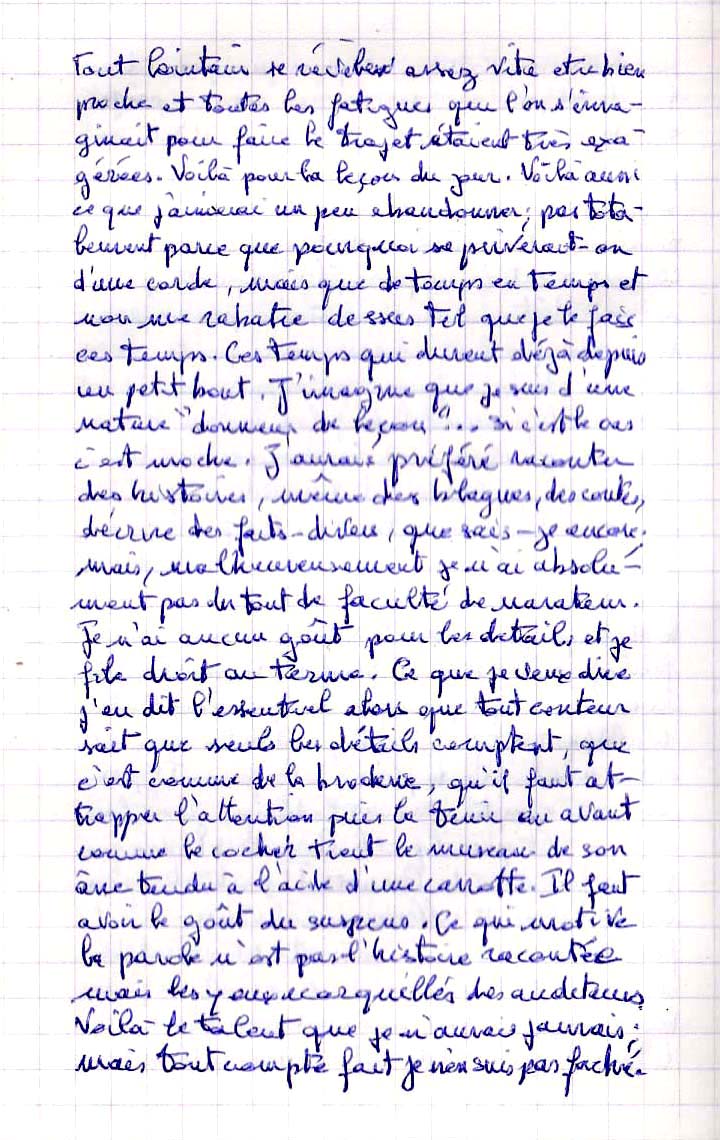 Tout lointain se révèle assez vite être bien
proche et toutes les fatigues que l'on s'ima-
ginait pour faire le trajet étaient très exa-
gérées. Voilà pour la leçon du jour. Voilà aussi
ce que j'aimerai un peu abandonner; pas tota-
lement parce que pourquoi se priverait-on
d'une corde, mais que de temps en temps et
non me rabatre dessus tel que je le fais
ces temps. Ces temps qui durent déjà depuis
un petit bout. J'imagine que je suis d'une
nature "donneur de leçon"... si c'est le cas
c'est moche. J'aurais préféré raconter
des histoires, même des blagues, des contes,
décrire des faits-divers, que sais-je encore;
mais, malheureusement je n'ai absolu-
ment pas du tout de faculté de narateur.
Je n'ai aucun goût pour les détails et je
file droit au terme. Ce que je veux dire
j'en dit l'essentiel alors que tout conteur
sait que seuls les détails comptent, que
c'est comme de la broderie, qu'il faut at-
trapper l'attention puis la tenir en avant
comme le cocher tient le museau de son
âne tendu à l'aide d'une carotte. Il faut
avoir le goût du suspens. Ce qui motive
la parole n'est pas l'histoire racontée
mais les yeux ecarquillés des auditeurs.
Voilà le talent que je n'aurai jamais;
mais tout compte fait je n'en suis pas faché.